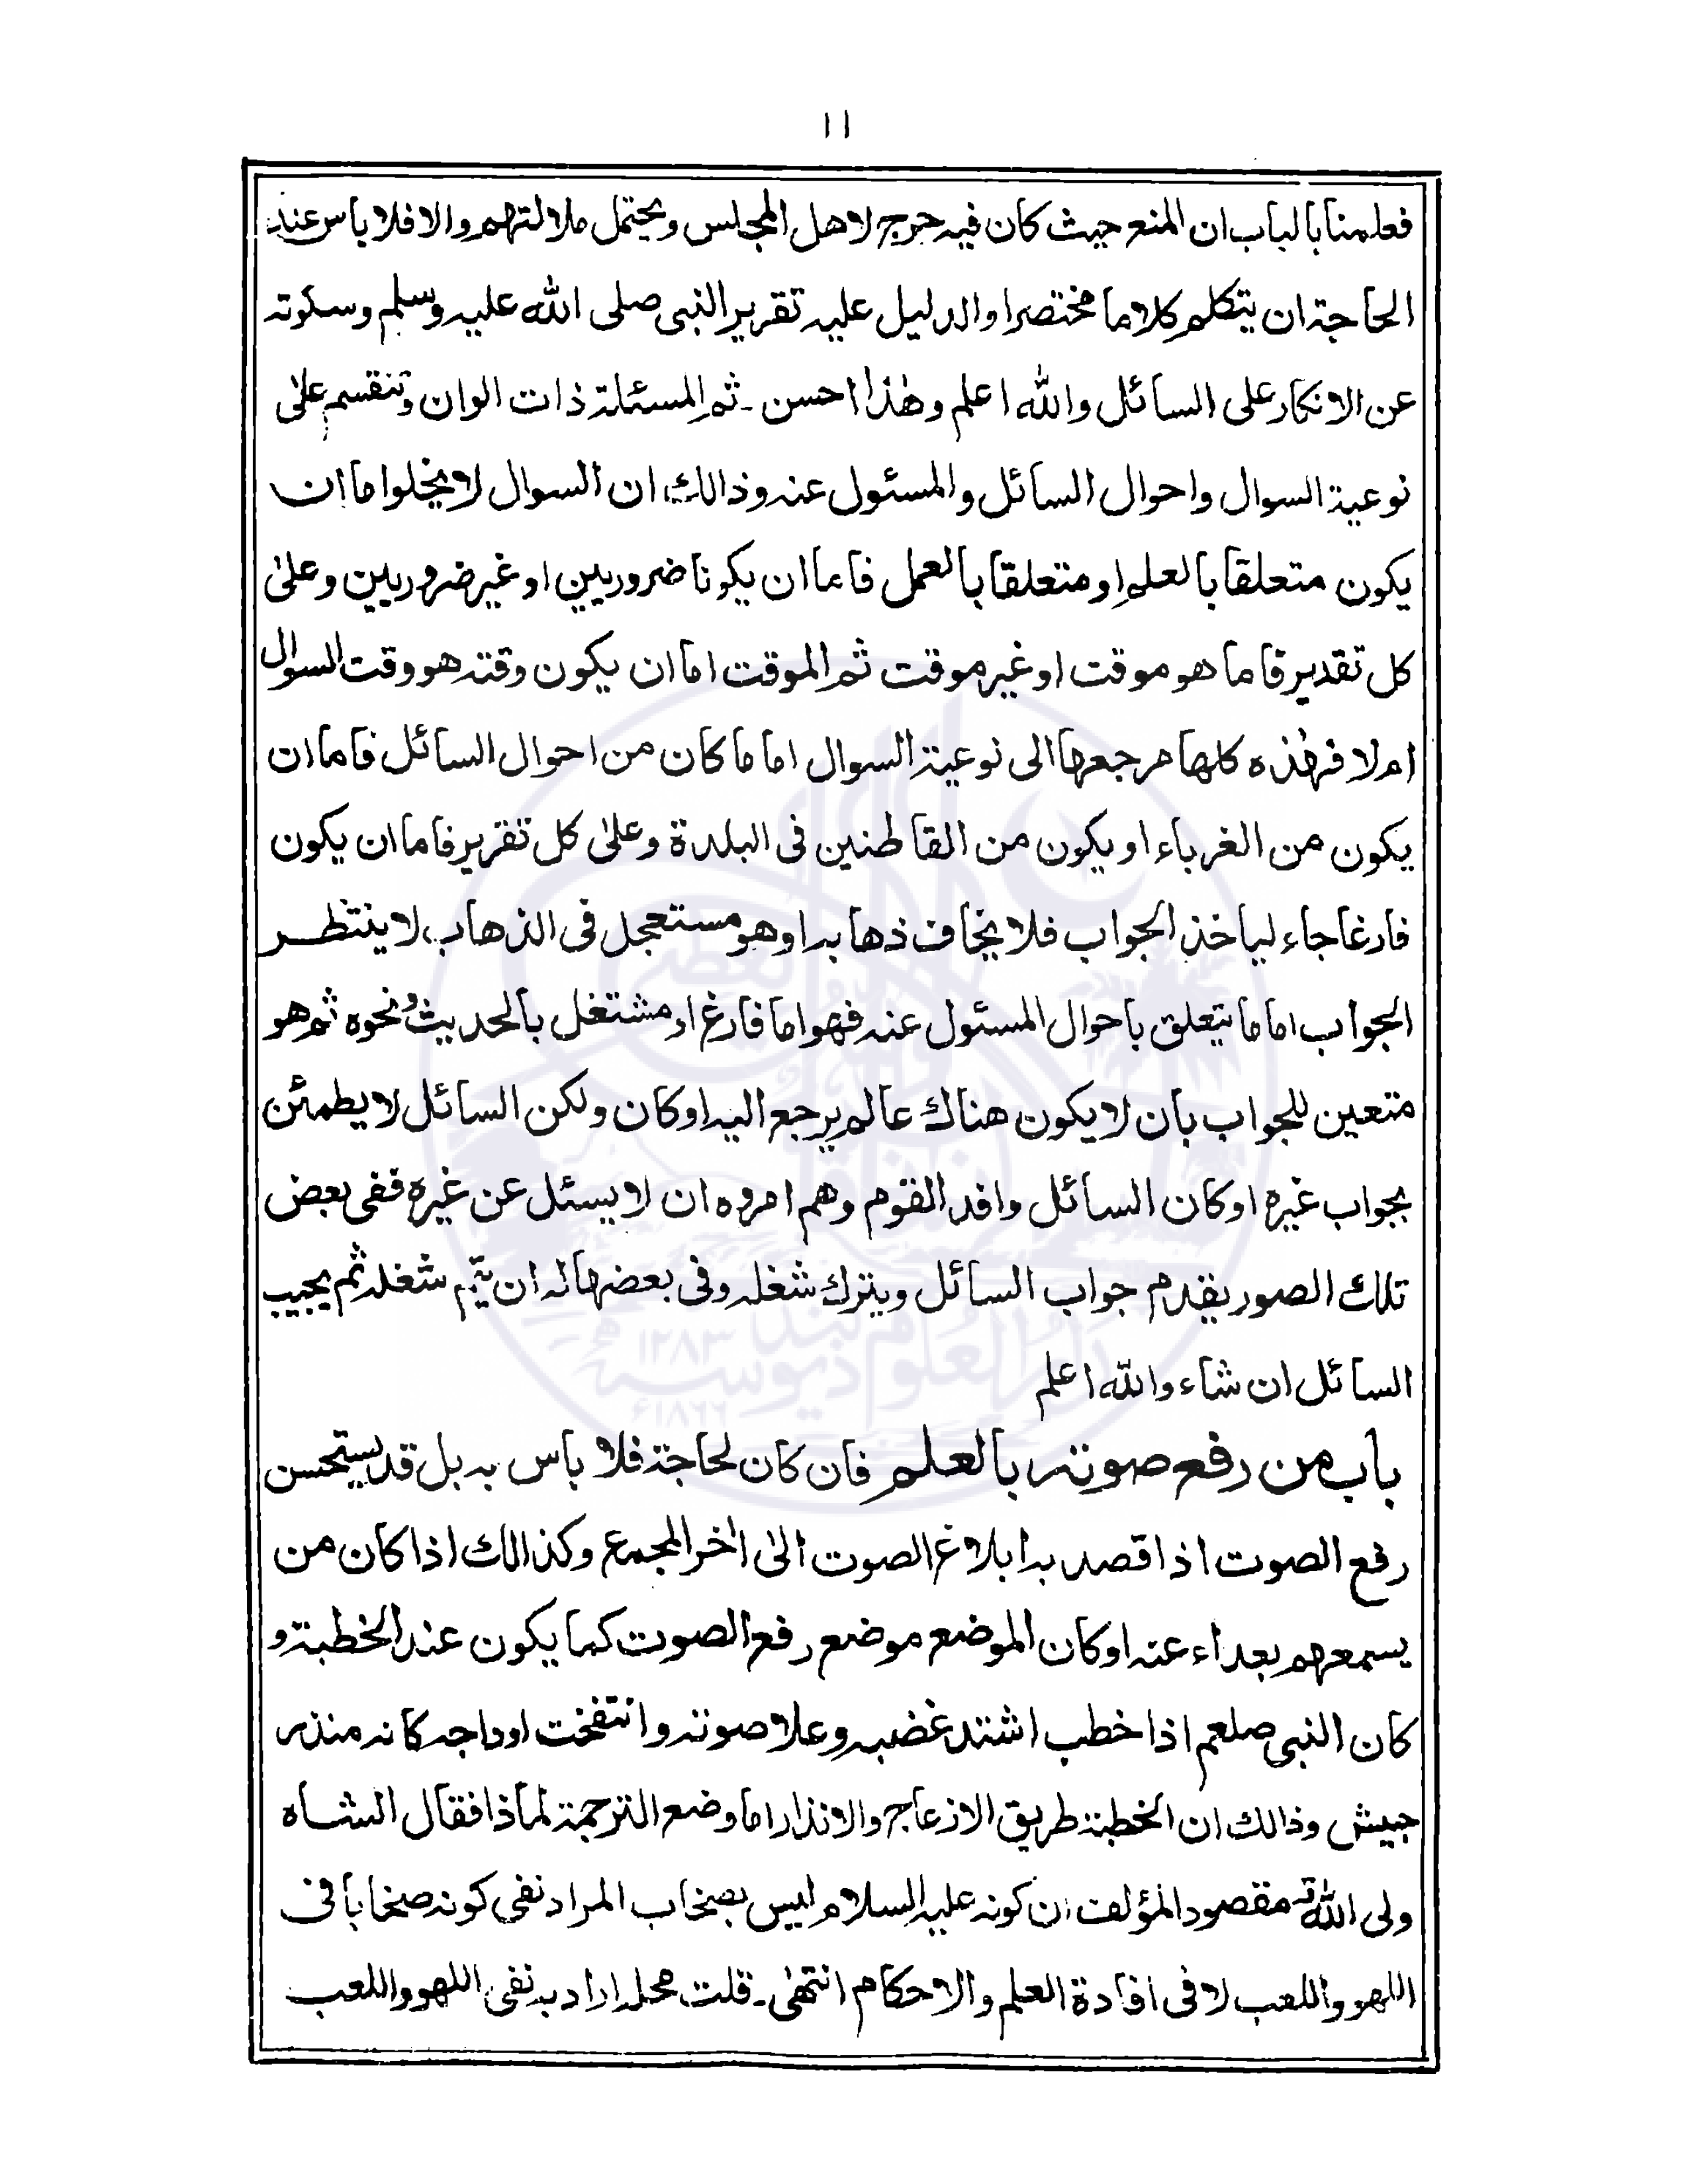 ١١
فعلمنا بالباب ان المنع حيث كان فيه حرج لاهل المجلس ويحتمل ملالتهم والا فلا باس عند
الحاجة ان يتكلم كلاما مختصرا والدليل عليه تقرير النبي صلى الله عليه وسلم وسكوته
عن الانكار على السائل والله اعلم وهٰذا احسن ۔ ثم المسئلة ذات الوان وتنقسم علىٰ
نوعية السوال واحوال السائل والمسئول عنه وذالك ان السوال لا يخلوا اما ان
يكون متعلقا بالعلم او متعلقا بالعمل فاما ان يكونا ضروريين او غير ضروريين وعلىٰ
كل تقدير فاما هو موقت او غير موقت ثم الموقت اما ان يكون وقته هو وقت السوال
ام لا فهٰذه كلها مرجعها الى نوعية السوال اما ما كان من احوال السائل فاما ان
يكون من الغرباء او يكون من القاطنين فى البلدة وعلىٰ كل تقرير فاما ان يكون
فارغا جاء لياخذ الجواب فلا يخاف ذهابه او هو مستعجل فى الذهاب، لا ينتظر
الجواب اما ما يتعلق باحوال المسئول عنه فهو اما فارغ او مشتغل بالحديث ونحوه ثم هو
متعين للجواب بان لا يكون هناك عالم يرجع اليه او كان ولكن السائل لا يطمئن
بجواب غيره او كان السائل وافد القوم وهم امروه ان لا يسئل عن غيره ففى بعض
تلك الصور يقدم جواب السائل ويترك شغله وفى بعضها له ان يتم شغله ثم يجيب
السائل ان شاء والله اعلم
باب من رفع صوته بالعلم فان كان لحاجة فلا باس به بل قد يستحسن
رفع الصوت اذا قصد به ابلاغ الصوت الىٰ اٰخر المجمع وكذالك اذا كان من
يسمعهم بعداء عنه او كان الموضع موضع رفع الصوت كما يكون عند الخطبة و
كان النبي صلعم اذا خطب اشتد غضبه وعلا صوته وانتفخت اوداجه كانه منذر
جيش وذالك ان الخطبة طريق الازعاج والانذار اما وضع الترجمة لماذا فقال الشاه
ولى الله مقصود المؤلف ان كونه عليه السلام ليس بصخاب المراد نفى كونه صخابا فى
اللهو واللعب لا فى افادة العلم والاحكام انتهٰى ۔ قلت، محله اراد به نفى اللهو واللعب
دار العلوم ديوبند
١٢٨٣ھ
١٨٦٦ء